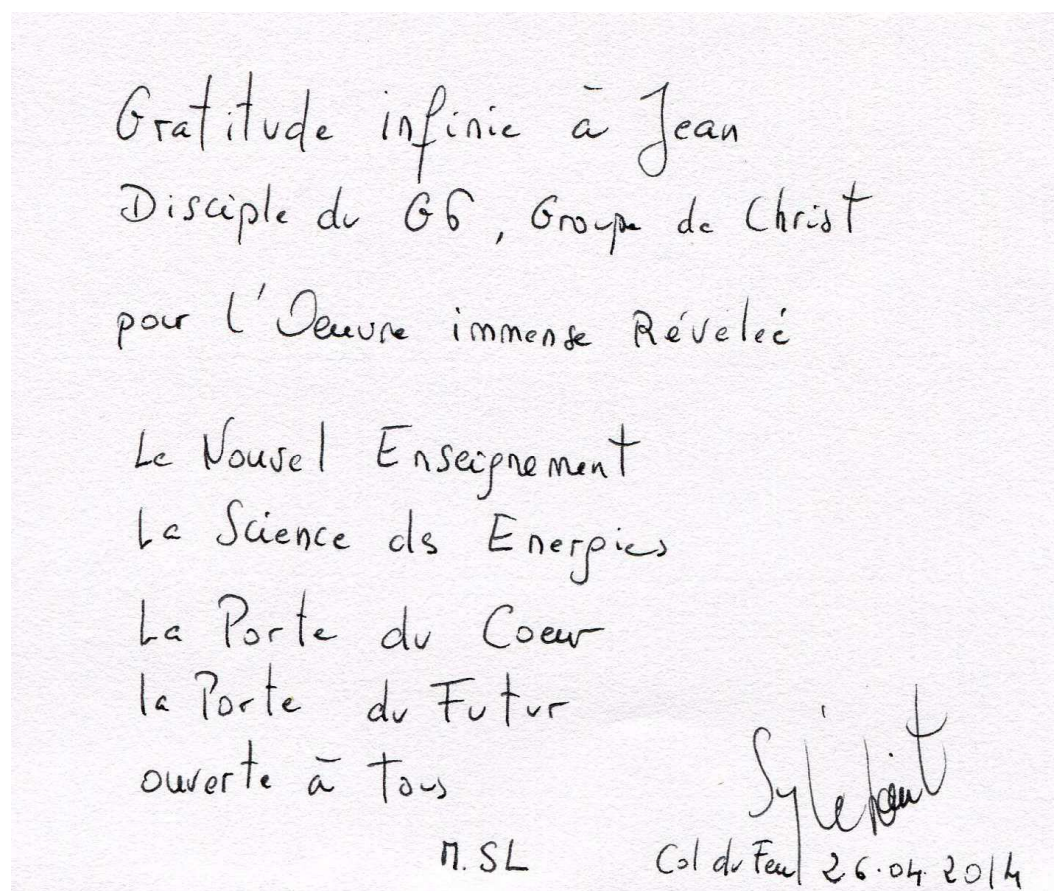 Gratitude infinie à Jean
Disciple du G6, Groupe de Christ
pour l'Oeuvre immense Révelée
Le Nouvel Enseignement
La Science des Energies
La Porte du Coeur
la Porte du Futur
ouverte à Tous
M. SL
Col du Feu 26.04.2014